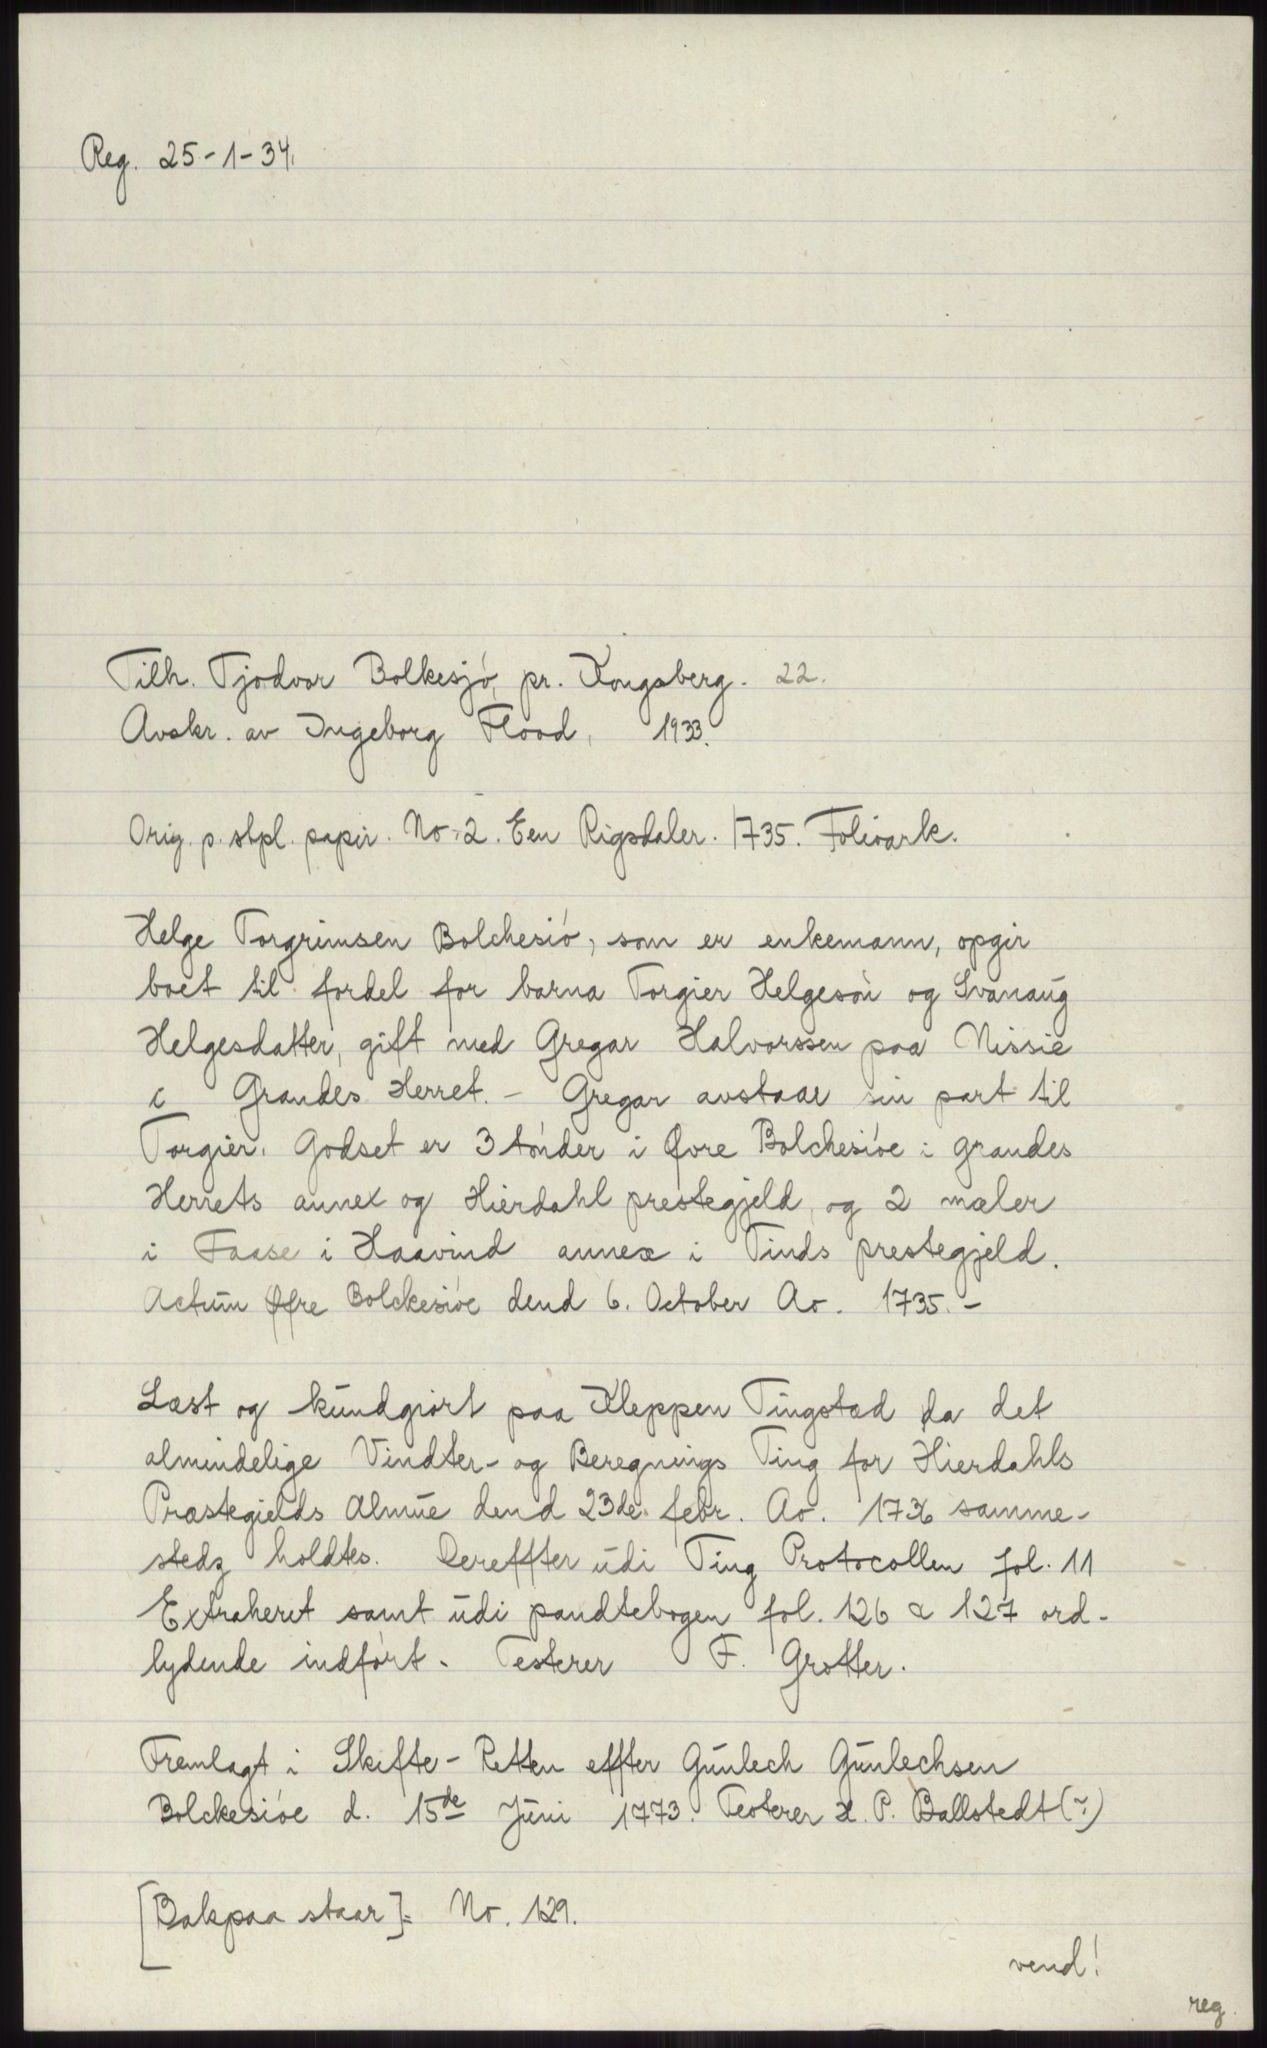 Reg. 25-1-34.
Tilh. Tjodvor Bolkesjó, pr. Kongsberg. 22.
Avskr. av Ingeborg Flood, 1933.
Orig. p. stpl. papir. No. 2. Een Rigsdaler. 1735. Folioark.
Helge Torgrimsen Bolchesió, som er enkemann, opgir
boet til fordel for barna Torgier Helgesøn og Svanaug
Helgesdatter, gift med Gregar Halvorssen paa Nissie
i Grandes Herret. - Gregar avstaar sin part til
Torgier. Godset er 3 tónder i Øvre Bolchesióe i grandes
Herrets annex og Hierdahl prestegjeld, og 2 mæler
i Faase i Haavind annex i Tinds prestegjeld.
Actum Øfre Bolckesióe dend 6. October Ao. 1735. -
Læst og kundgiort paa Kleppen Tingstad da det
almindelige Vindter- og Beregnings Ting for Hierdahls
Præstegields Almue dend 23de febr. Ao. 1736 samme-
stedz holdtes. Dereffter udi Ting Protocollen fol. 11
Extraheret samt udi pandtebogen fol. 126 & 127 ord-
lydende indfórt. Testerer F. Grotter.
Fremlagt i Skifte-Retten effter Gunlech Gunlechsen
Bolckesióe d. 15de Juni 1773. Testerer H. P. Ballstedt (?)
[Bakpaa staar]: No. 129.
vend!
reg.